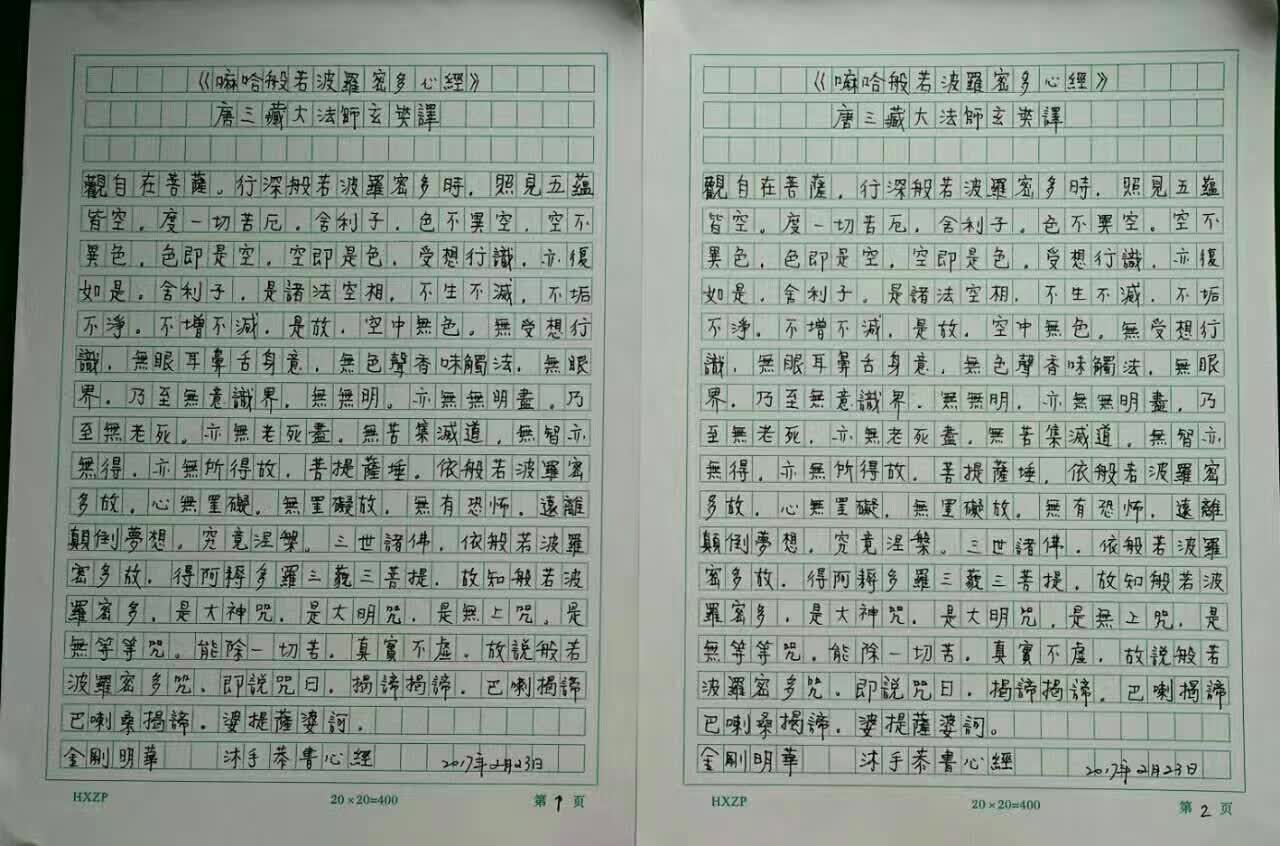 《嘛哈般若波羅密多心經》
唐三藏大法師玄奘譯
觀自在菩薩。行深般若波羅密多時，照見五蘊
皆空。度一切苦厄，舍利子，色不異空，空不
異色，色即是空，空即是色，受想行識，亦復
如是。舍利子，是諸法空相，不生不滅，不垢
不淨。不增不減，是故，空中無色。無受想行
識，無眼耳鼻舌身意，無色聲香味觸法，無眼
界，乃至無意識界，無無明。亦無無明盡，乃
至無老死。亦無老死盡。無苦集滅道，無智亦
無得，亦無所得故，菩提薩埵。依般若波羅密
多故，心無罣礙，無罣礙故，無有恐怖。遠離
顛倒夢想。究竟涅槃。三世諸佛，依般若波羅
密多故，得阿耨多羅三藐三菩提，故知般若波
羅密多，是大神咒，是大明咒，是無上咒。是
無等等咒。能除一切苦，真實不虛。故說般若
波羅密多咒，即說咒曰，揭諦揭諦，巴喇揭諦
巴喇桑揭諦。婆提薩婆訶，
金剛明華 沐手恭書心經 2017年2月23日
HXZP 20×20=400 第1頁
《嘛哈般若波羅密多心經》
唐三藏大法師玄奘譯
觀自在菩薩，行深般若波羅密多時，照見五蘊
皆空。度一切苦厄，舍利子。色不異空。空不
異色，色即是空，空即是色，受想行識，亦復
如是，舍利子。是諸法空相，不生不滅，不垢
不淨。不增不減，是故，空中無色。無受想行
識，無眼耳鼻舌身意，無色聲香味觸法，無眼
界，乃至無意識界，無無明，亦無無明盡，乃
至無老死，亦無老死盡，無苦集滅道。無智亦
無得，亦無所得故，菩提薩埵，依般若波羅密
多故，心無罣礙，無罣礙故，無有恐怖，遠離
顛倒夢想，究竟涅槃。三世諸佛，依般若波羅
密多故，得阿耨多羅三藐三菩提，故知般若波
羅密多，是大神咒，是大明咒，是無上咒，是
無等等咒，能除一切苦，真實不虛，故說般若
波羅密多咒，即說咒曰，揭諦揭諦，巴喇揭諦
巴喇桑揭諦，婆提薩婆訶。
金剛明華 沐手恭書心經 2017年2月23日
HXZP 20×20=400 第2頁